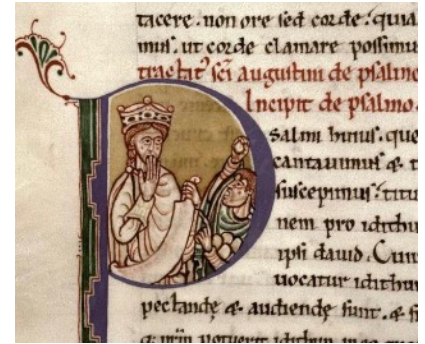 tacere. non ore sed corde. quia
mus. ut corde clamare possimu
tractat' sci augustini de psalmo
Incipit de psalmo.
Psalmi huius. que
cantauimus & t
suscepimus: titu
nem pro idithu
ipsi dauid. Cum
uocatur idithu
pectandę & audiendę sunt. & si
potuerit idithun